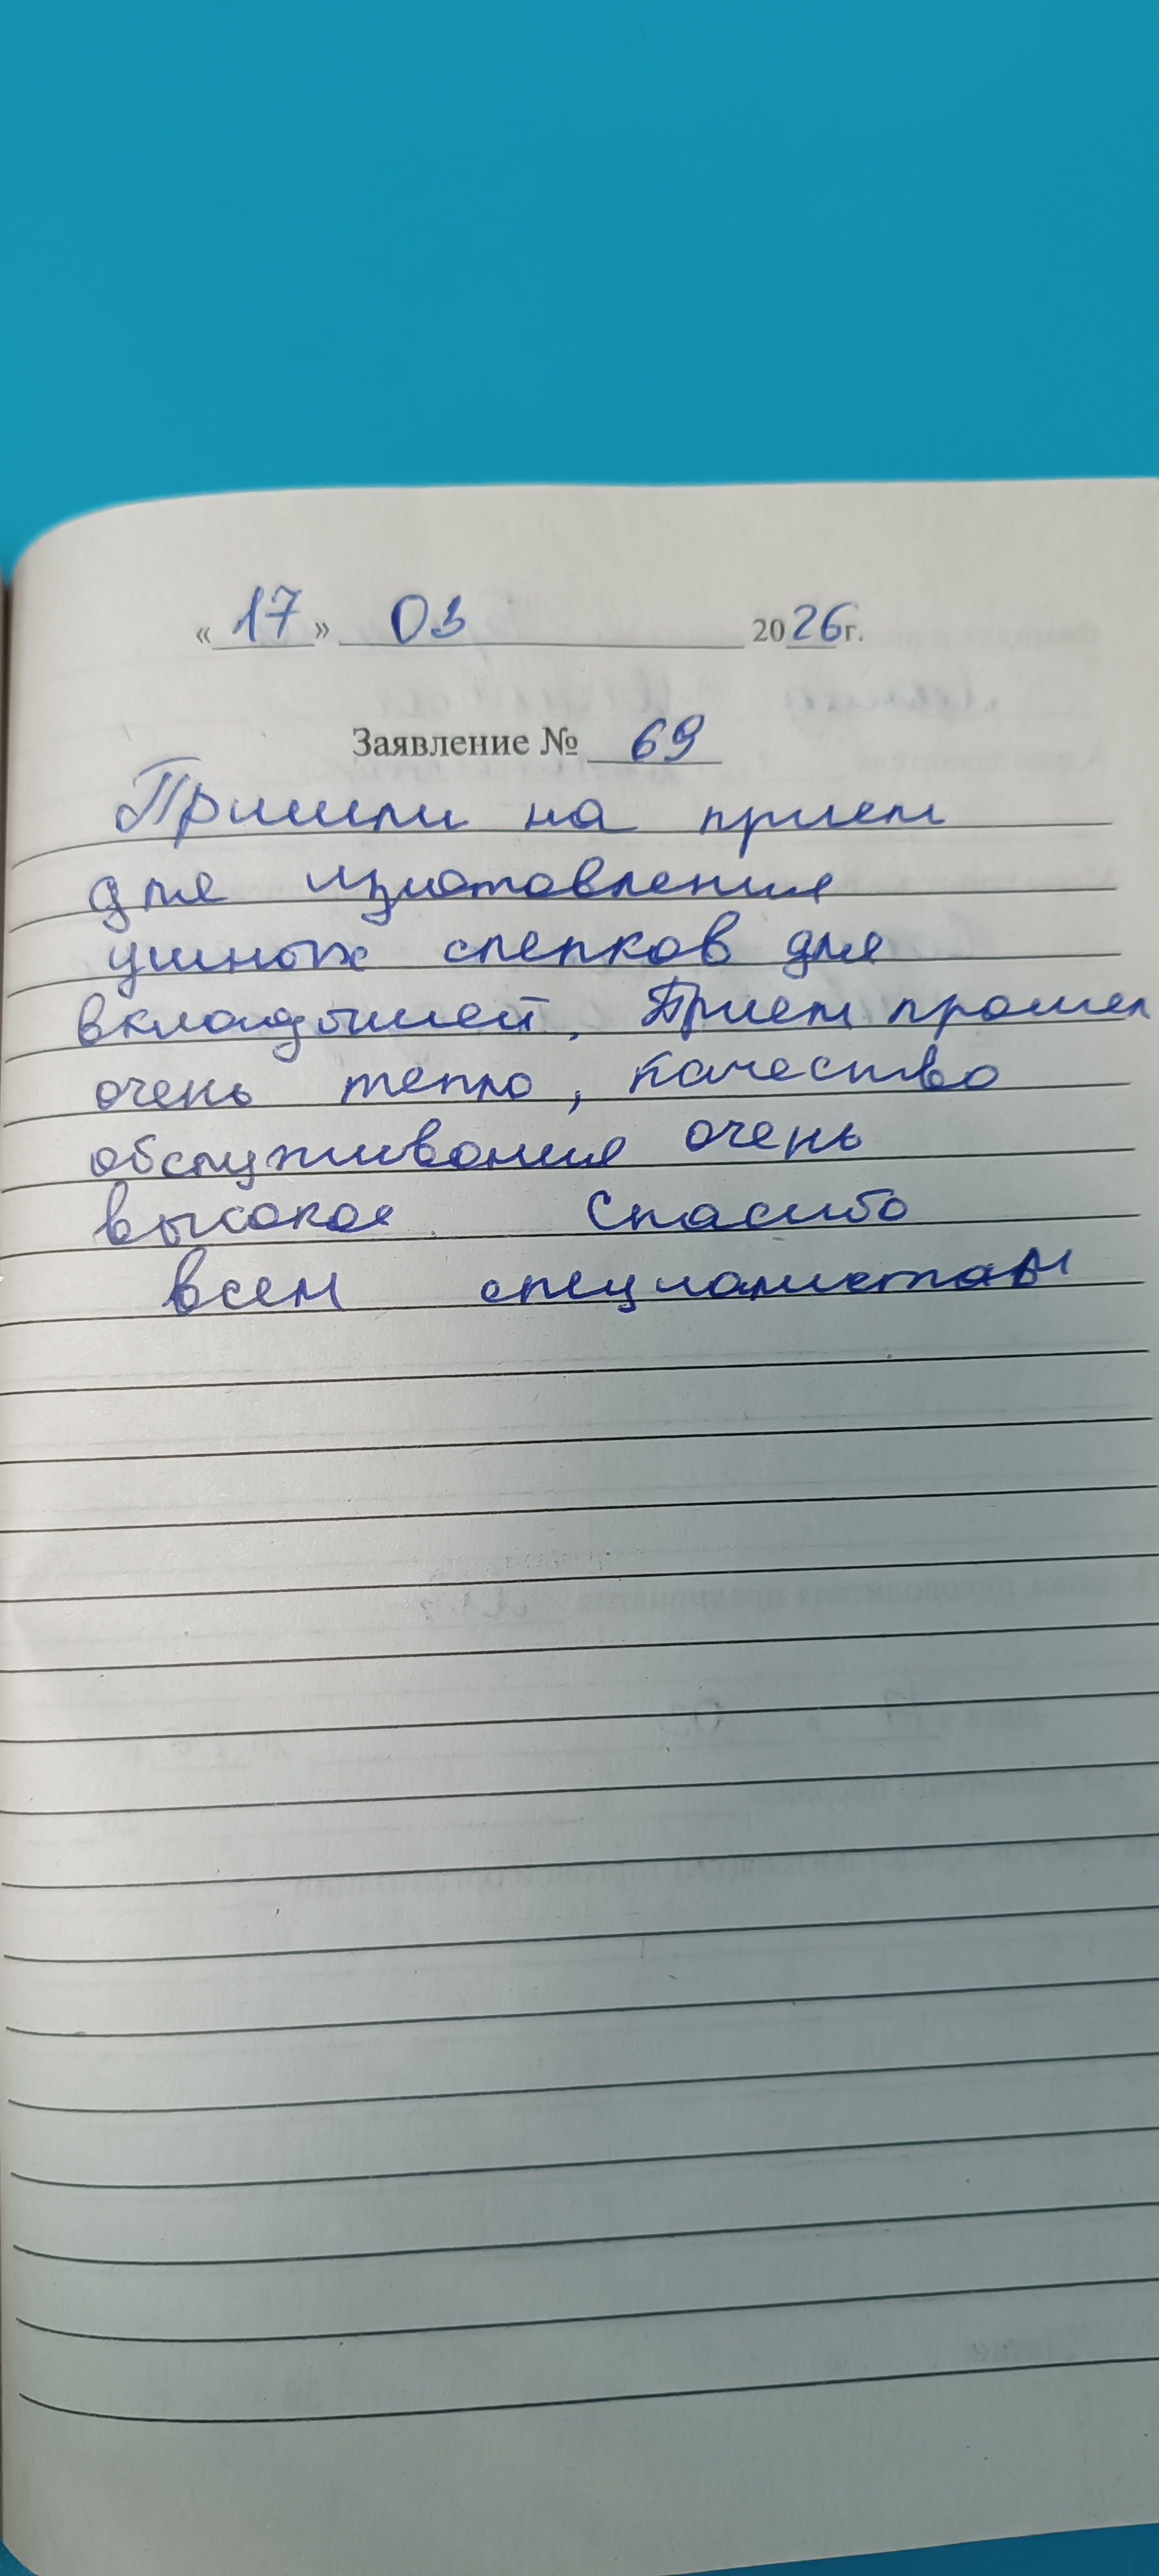 « 17 » 03 2026 г.
Заявление № 69
Пришли на прием
для изготовления
ушных слепков для
вкладышей, Прием прошел
очень тепло, качество
обслуживания очень
высокое Спасибо
всем специалистам